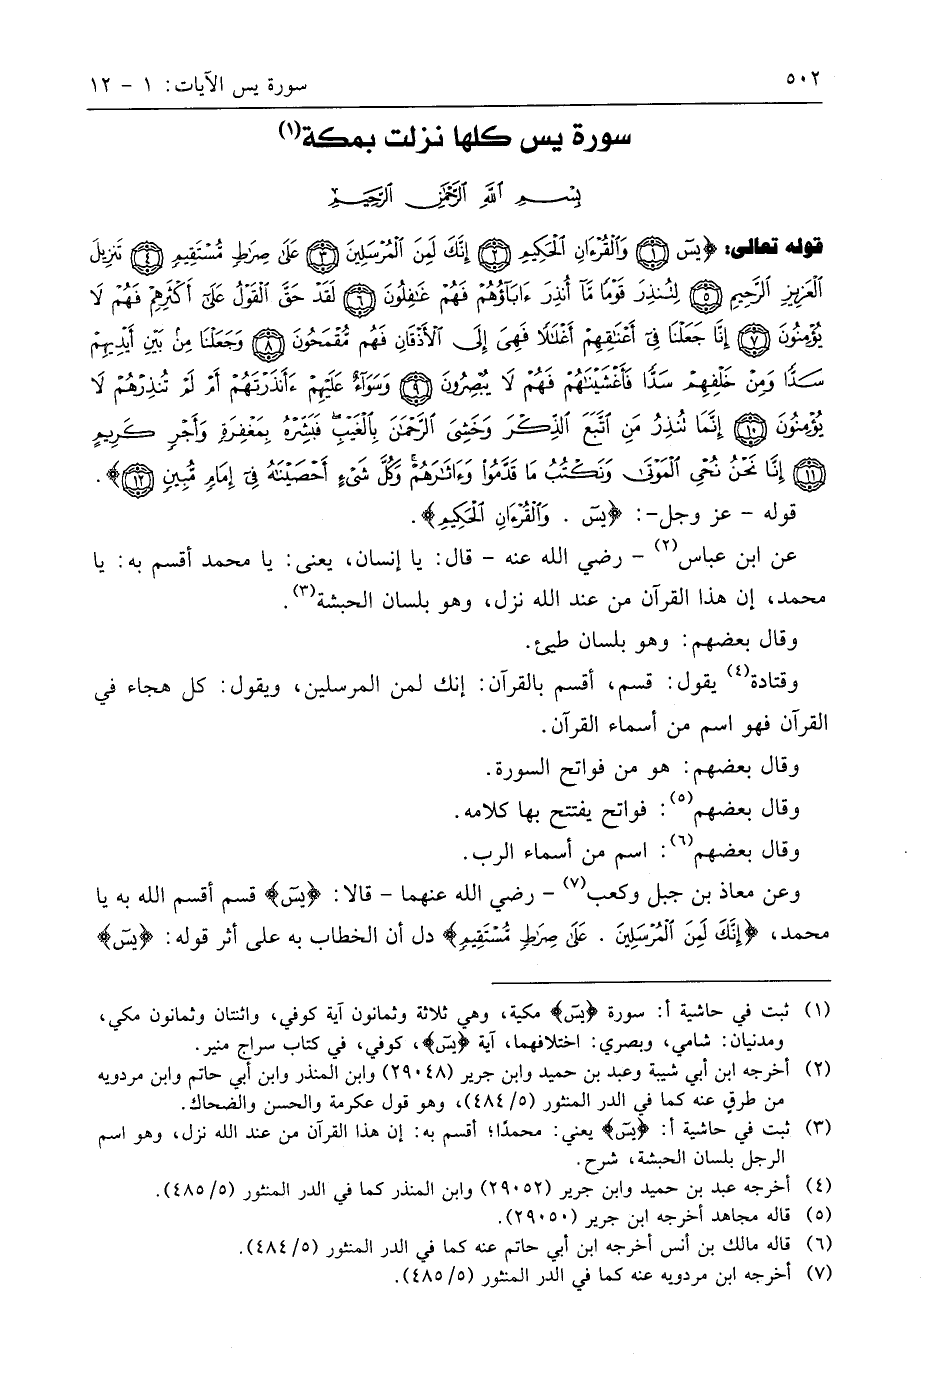 ٥٠٢
سورة يس الآيات: ١ - ١٢
سورة يس كلها نزلت بمكة(١)
بِسْمِ ٱللَّهِ ٱلرَّحْمَٰنِ ٱلرَّحِيمِ
قوله تعالى: ﴿يسٓ ﴿١﴾ وَٱلْقُرْءَانِ ٱلْحَكِيمِ ﴿٢﴾ إِنَّكَ لَمِنَ ٱلْمُرْسَلِينَ ﴿٣﴾ عَلَىٰ صِرَٰطٍ مُّسْتَقِيمٍ ﴿٤﴾ تَنزِيلَ
ٱلْعَزِيزِ ٱلرَّحِيمِ ﴿٥﴾ لِتُنذِرَ قَوْمًا مَّآ أُنذِرَ ءَابَآؤُهُمْ فَهُمْ غَٰفِلُونَ ﴿٦﴾ لَقَدْ حَقَّ ٱلْقَوْلُ عَلَىٰٓ أَكْثَرِهِمْ فَهُمْ لَا
يُؤْمِنُونَ ﴿٧﴾ إِنَّا جَعَلْنَا فِىٓ أَعْنَٰقِهِمْ أَغْلَٰلًا فَهِىَ إِلَى ٱلْأَذْقَانِ فَهُم مُّقْمَحُونَ ﴿٨﴾ وَجَعَلْنَا مِنۢ بَيْنِ أَيْدِيهِمْ
سَدًّا وَمِنْ خَلْفِهِمْ سَدًّا فَأَغْشَيْنَٰهُمْ فَهُمْ لَا يُبْصِرُونَ ﴿٩﴾ وَسَوَآءٌ عَلَيْهِمْ ءَأَنذَرْتَهُمْ أَمْ لَمْ تُنذِرْهُمْ لَا
يُؤْمِنُونَ ﴿١٠﴾ إِنَّمَا تُنذِرُ مَنِ ٱتَّبَعَ ٱلذِّكْرَ وَخَشِىَ ٱلرَّحْمَٰنَ بِٱلْغَيْبِ ۖ فَبَشِّرْهُ بِمَغْفِرَةٍ وَأَجْرٍ كَرِيمٍ
﴿١١﴾ إِنَّا نَحْنُ نُحْىِ ٱلْمَوْتَىٰ وَنَكْتُبُ مَا قَدَّمُوا۟ وَءَاثَٰرَهُمْ ۚ وَكُلَّ شَىْءٍ أَحْصَيْنَٰهُ فِىٓ إِمَامٍ مُّبِينٍ ﴿١٢﴾﴾.
قوله - عز وجل-: ﴿يسٓ . وَٱلْقُرْءَانِ ٱلْحَكِيمِ﴾.
عن ابن عباس(٢) - رضي الله عنه - قال: يا إنسان، يعني: يا محمد أقسم به: يا
محمد، إن هذا القرآن من عند الله نزل، وهو بلسان الحبشة(٣).
وقال بعضهم: وهو بلسان طيئ.
وقتادة(٤) يقول: قسم، أقسم بالقرآن: إنك لمن المرسلين، ويقول: كل هجاء في
القرآن فهو اسم من أسماء القرآن.
وقال بعضهم: هو من فواتح السورة.
وقال بعضهم(٥): فواتح يفتتح بها كلامه.
وقال بعضهم(٦): اسم من أسماء الرب.
وعن معاذ بن جبل وكعب(٧) - رضي الله عنهما - قالا: ﴿يسٓ﴾ قسم أقسم الله به يا
محمد، ﴿إِنَّكَ لَمِنَ ٱلْمُرْسَلِينَ . عَلَىٰ صِرَٰطٍ مُّسْتَقِيمٍ﴾ دل أن الخطاب به على أثر قوله: ﴿يسٓ﴾
(١) ثبت في حاشية أ: سورة ﴿يسٓ﴾ مكية، وهي ثلاثة وثمانون آية كوفي، واثنتان وثمانون مكي،
ومدنيان: شامي، وبصري: اختلافهما، آية ﴿يسٓ﴾، كوفي، في كتاب سراج منير.
(٢) أخرجه ابن أبي شيبة وعبد بن حميد وابن جرير (٢٩٠٤٨) وابن المنذر وابن أبي حاتم وابن مردويه
من طرقٍ عنه كما في الدر المنثور (٥/ ٤٨٤)، وهو قول عكرمة والحسن والضحاك.
(٣) ثبت في حاشية أ: ﴿يسٓ﴾ يعني: محمدًا؛ أقسم به: إن هذا القرآن من عند الله نزل، وهو اسم
الرجل بلسان الحبشة، شرح.
(٤) أخرجه عبد بن حميد وابن جرير (٢٩٠٥٢) وابن المنذر كما في الدر المنثور (٥/ ٤٨٥).
(٥) قاله مجاهد أخرجه ابن جرير (٢٩٠٥٠).
(٦) قاله مالك بن أنس أخرجه ابن أبي حاتم عنه كما في الدر المنثور (٥/ ٤٨٤).
(٧) أخرجه ابن مردويه عنه كما في الدر المنثور (٥/ ٤٨٥).